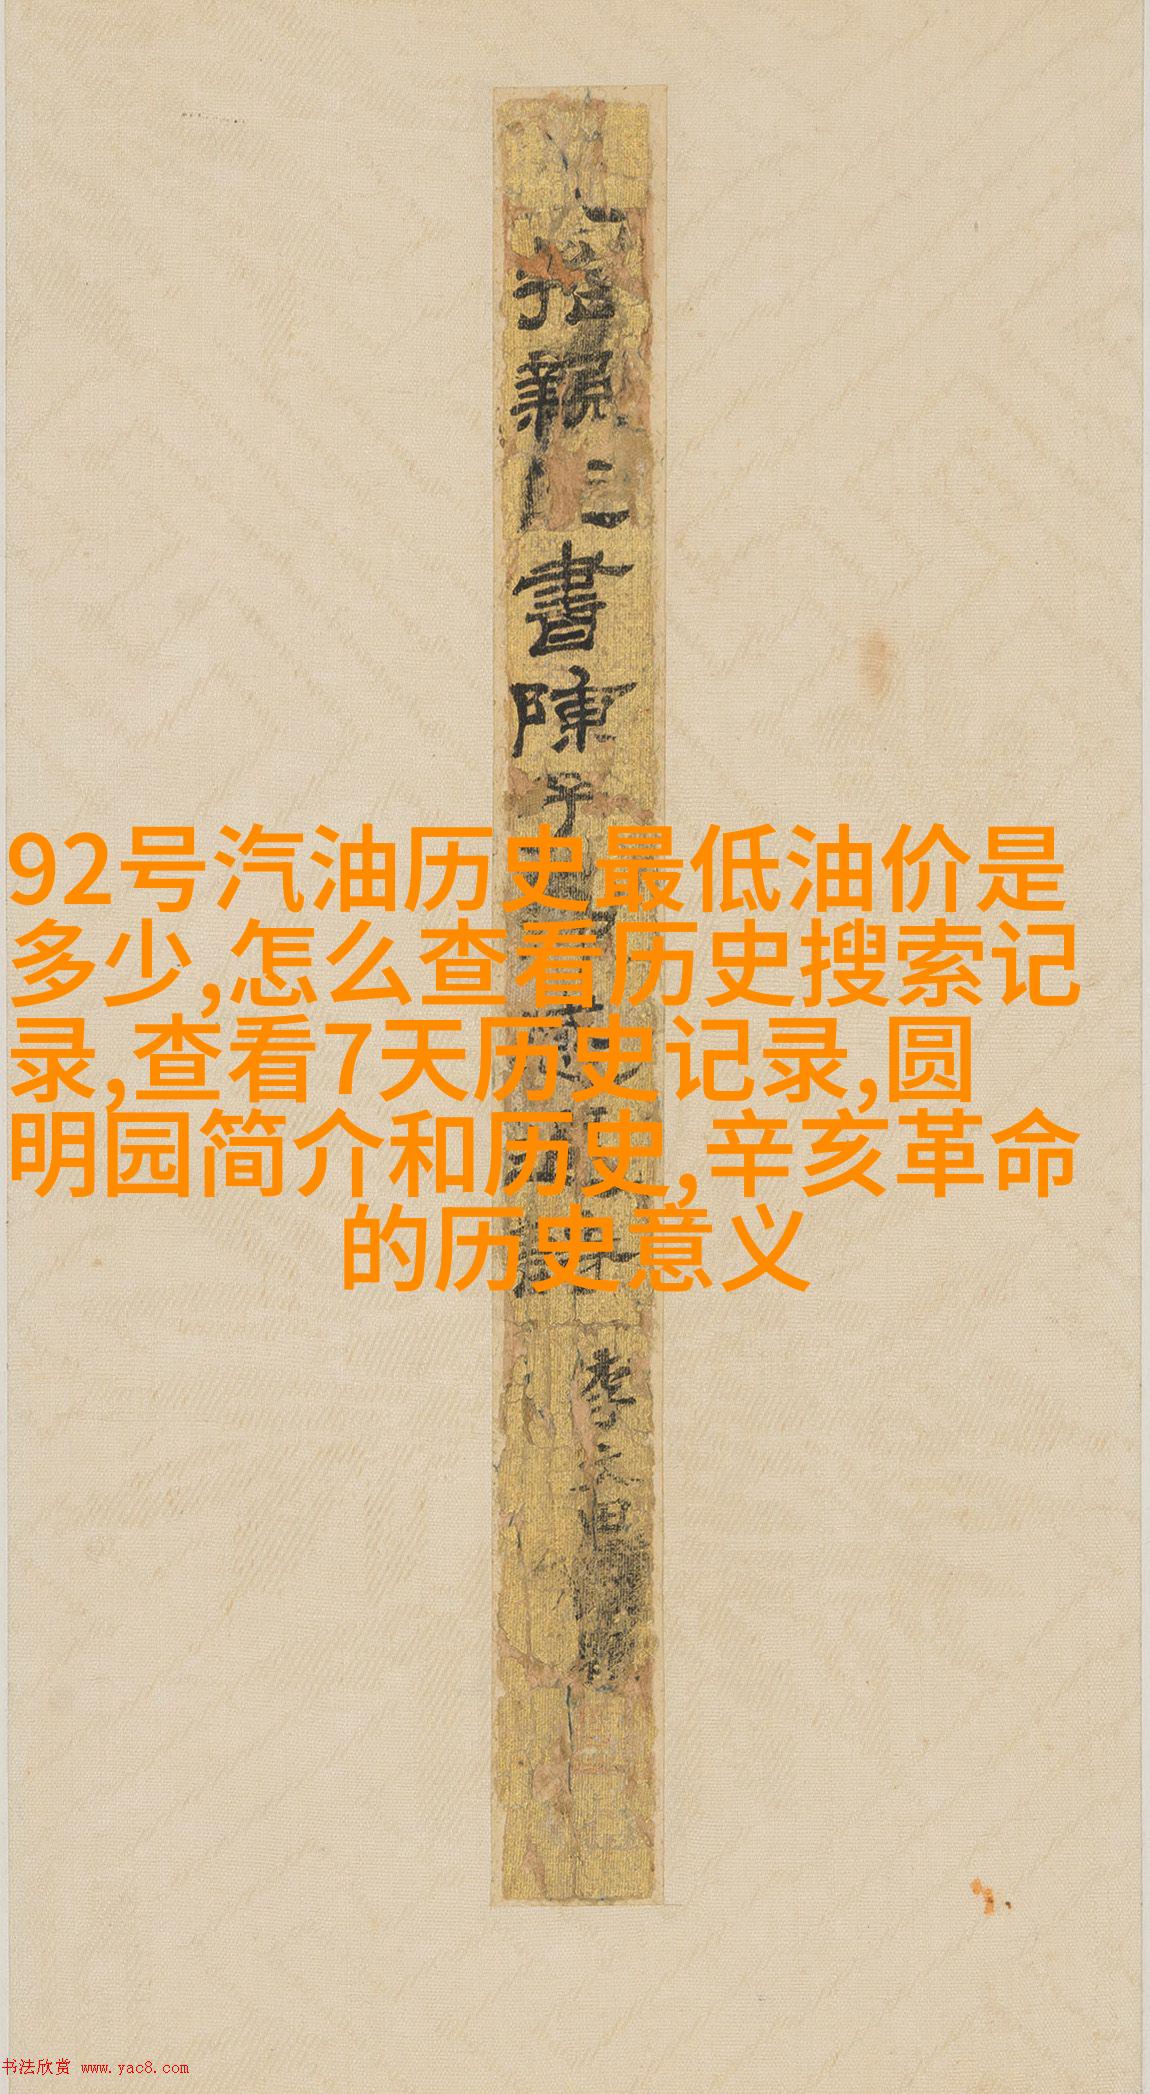 書陳子
李文田
92号汽油历史最低油价是
多少,怎么查看历史搜索记
录,查看7天历史记录,圆
明园简介和历史,辛亥革命
的历史意义
书法欣赏 www.yac8.com